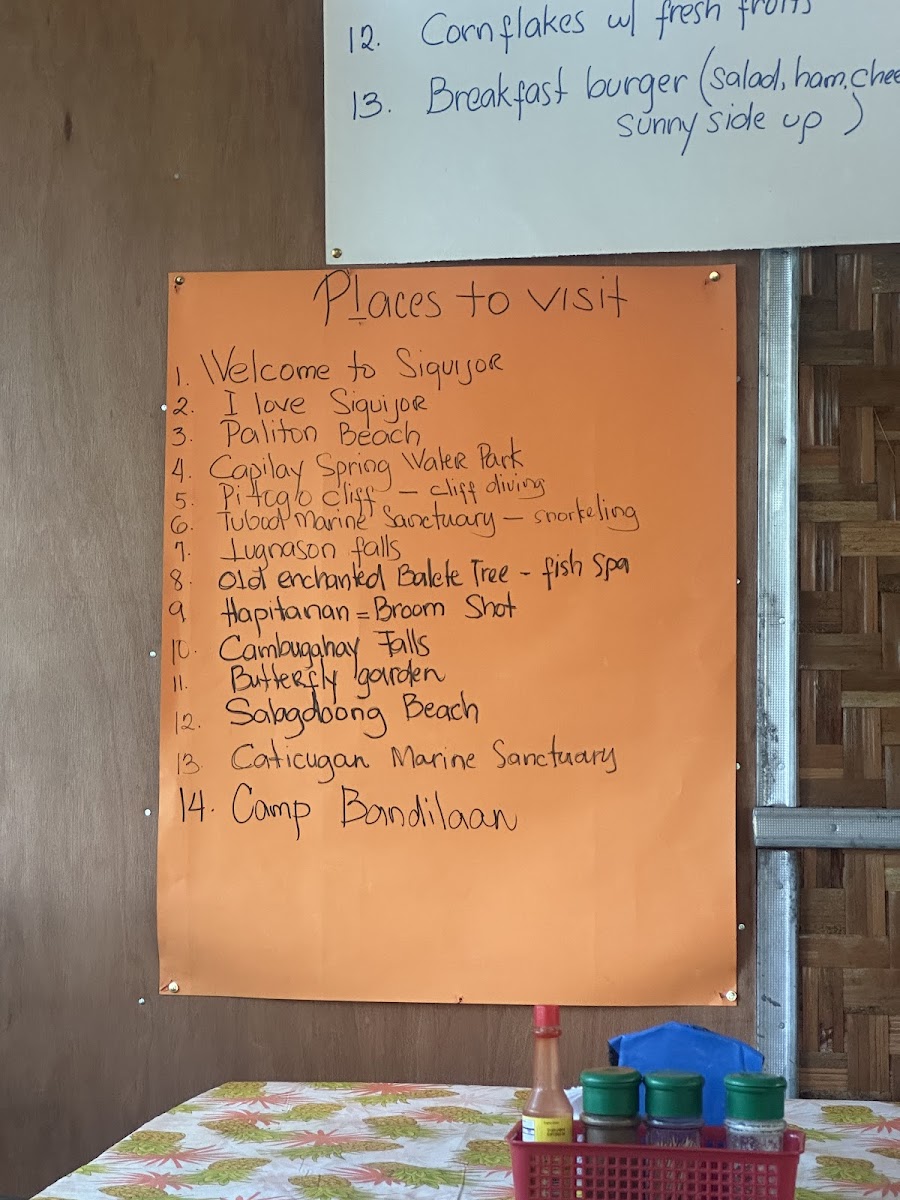 12. Cornflakes w/ fresh fruits
13. Breakfast burger (salad, ham, chee
sunny side up)
Places to visit
1. Welcome to Siquijor
2. I love Siquijor
3. Paliton Beach
4. Capilay Spring Water Park
5. Pitoglo cliff – cliff diving
6. Tubod Marine Sanctuary – snorkeling
7. Lugnason falls
8. Old enchanted Balete Tree - fish spa
9. Hapitanan = Broom Shot
10. Cambugahay Falls
11. Butterfly garden
12. Sabgdoong Beach
13. Caticugan Marine Sanctuary
14. Camp Bandilaan